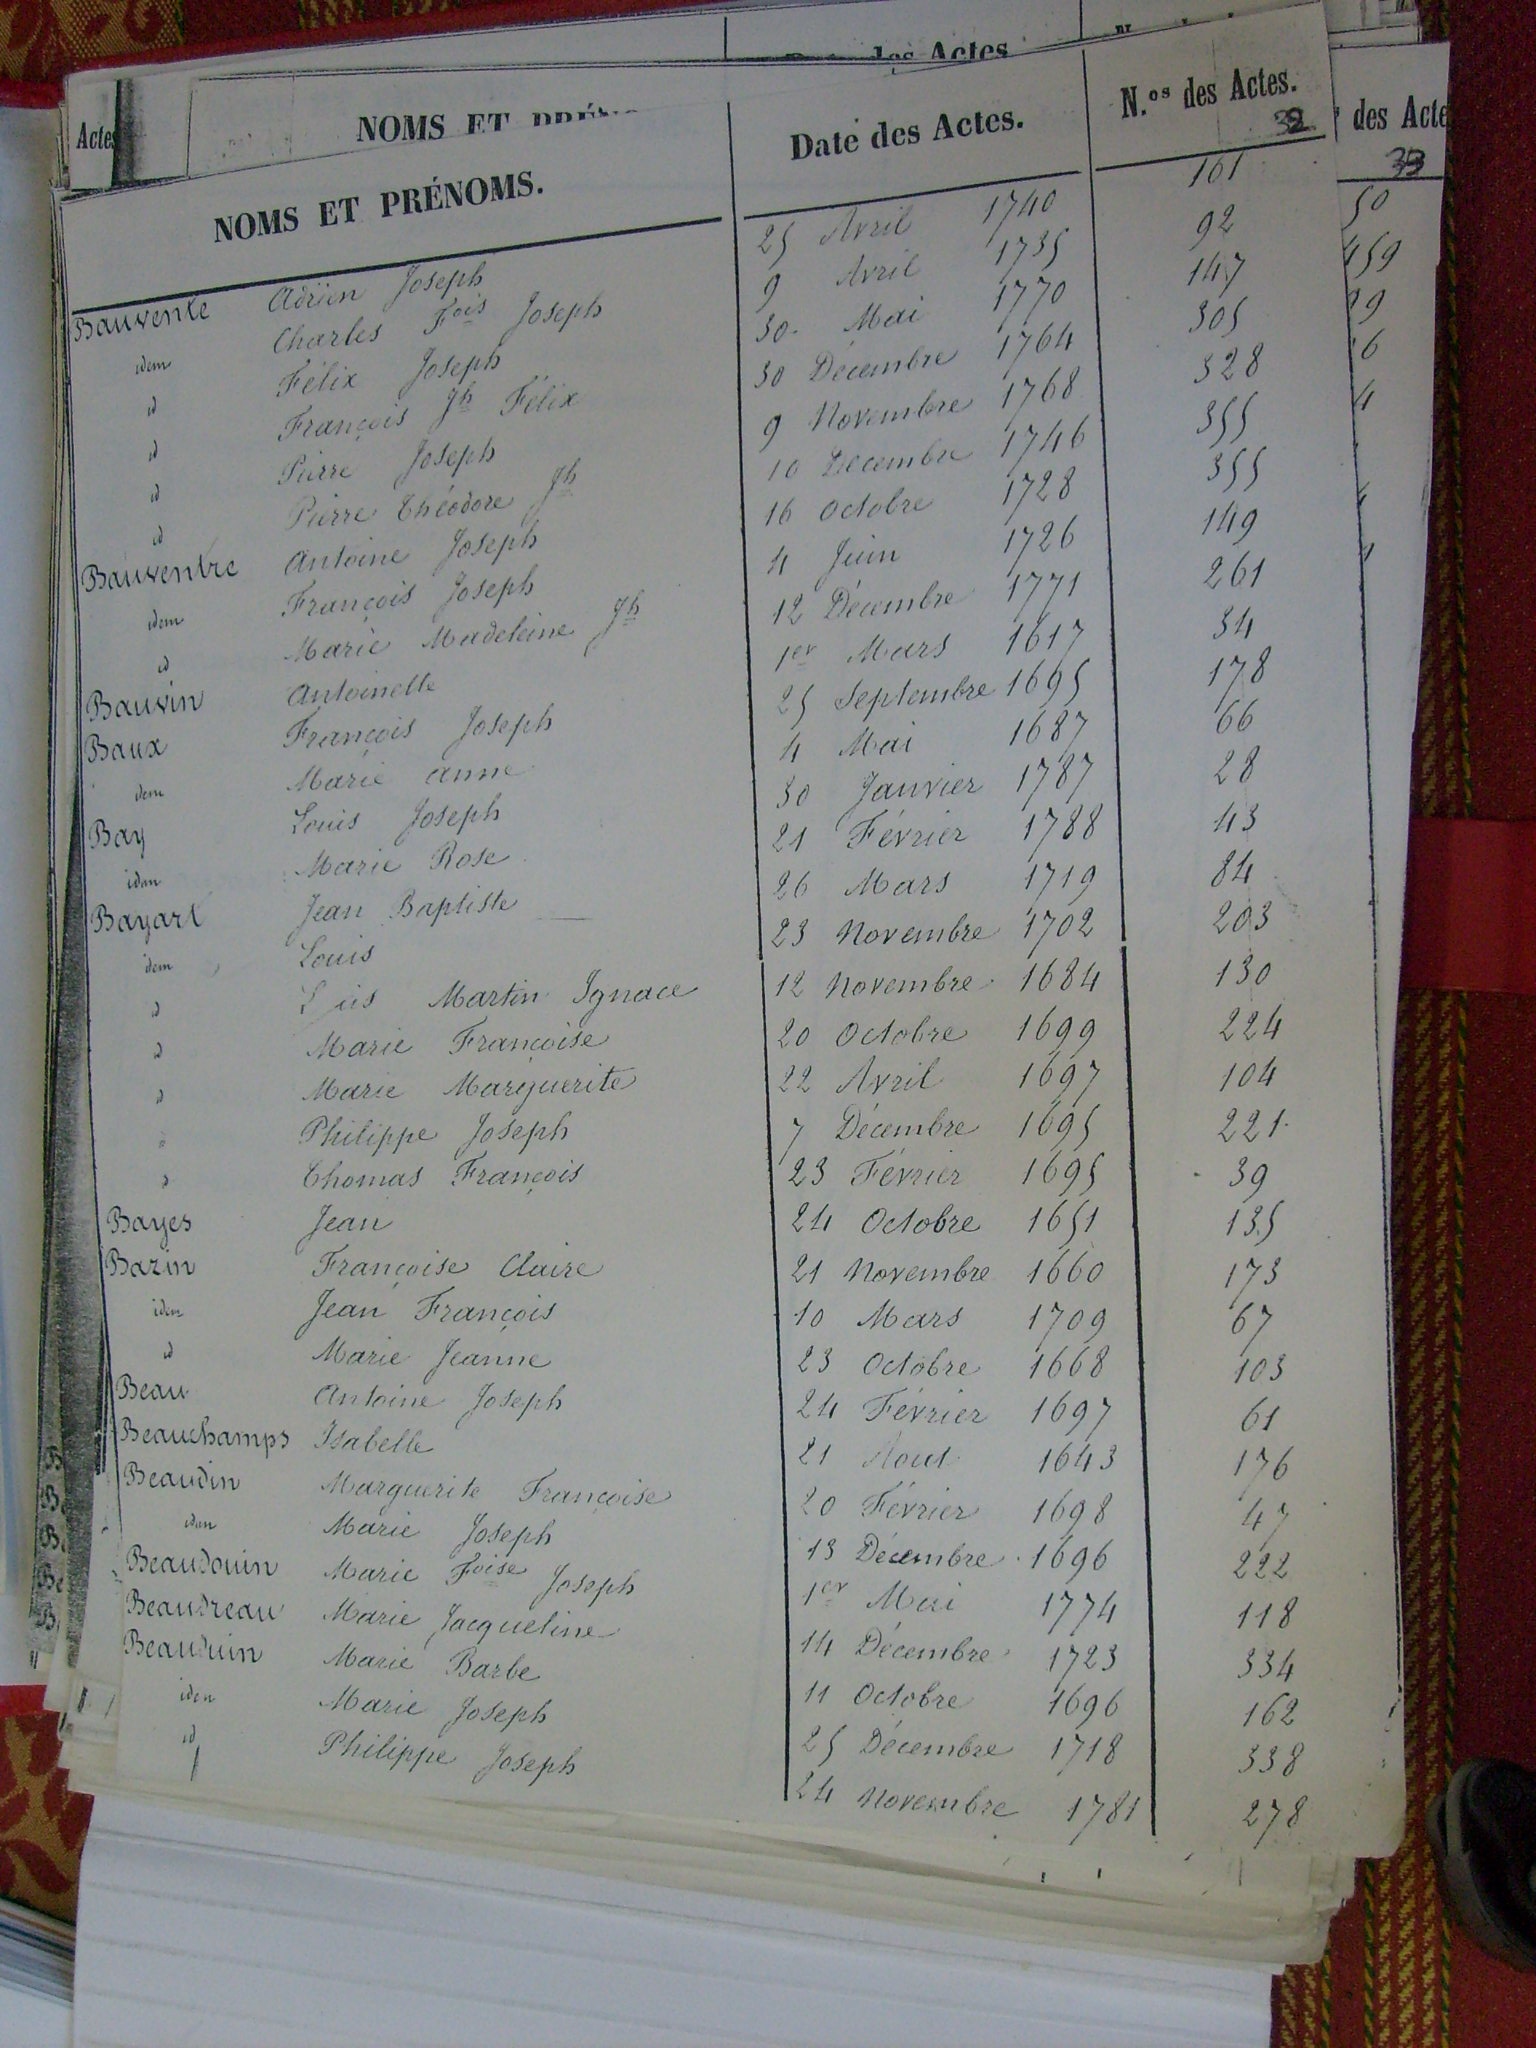 des Actes
Actes
NOMS ET PRÉN
NOMS ET PRÉNOMS. Date des Actes. N.os des Actes. des Acte
32 33
Bauvente Adrien Joseph 25 Avril 1740 161
idem Charles Fois Joseph 9 Avril 1735 92
id Félix Joseph 30 Mai 1770 147
id François Jh Félix 30 Décembre 1764 305
id Pierre Joseph 9 Novembre 1768 328
id Pierre Théodore Jh 10 Décembre 1746 355
Bauventre Antoine Joseph 16 Octobre 1728 355
idem François Joseph 4 Juin 1726 149
id Marie Madeleine Jh 12 Décembre 1771 261
Bauvin Antoinette 1er Mars 1617 34
Baux François Joseph 25 Septembre 1695 178
idem Marie Anne 4 Mai 1687 66
Bay Louis Joseph 30 Janvier 1787 28
idem Marie Rose 21 Février 1788 43
Bayart Jean Baptiste 26 Mars 1719 84
idem Louis 23 Novembre 1702 203
d Louis Martin Ignace 12 Novembre 1684 130
d Marie Françoise 20 Octobre 1699 224
d Marie Marguerite 22 Avril 1697 104
Philippe Joseph 7 Décembre 1695 221
d Thomas François 23 Février 1695 39
Bayes Jean 24 Octobre 1651 135
Bazin Françoise Claire 21 Novembre 1660 173
idem Jean François 10 Mars 1709 67
id Marie Jeanne 23 Octobre 1668 103
Beau Antoine Joseph 24 Février 1697 61
Beauchamps Isabelle 21 Aout 1643 176
Beaudin Marguerite Françoise 20 Février 1698 47
idem Marie Joseph 13 Décembre 1696 222
Beaudouin Marie Foise Joseph 1er Mai 1774 118
Beaudreau Marie Jacqueline 14 Décembre 1723 334
Beauduin Marie Barbe 11 Octobre 1696 162
idem Marie Joseph 25 Décembre 1718 338
id Philippe Joseph 24 Novembre 1781 278